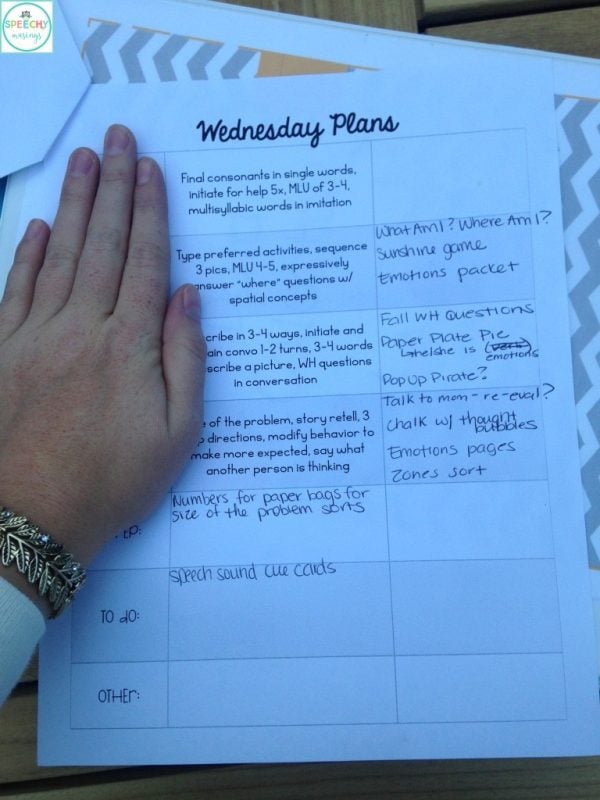 SPEECHY
musings
Wednesday Plans
Final consonants in single words,
initiate for help 5x, MLU of 3-4,
multisyllabic words in imitation
Type preferred activities, sequence
3 pics, MLU 4-5, expressively
answer "where" questions w/
spatial concepts
What Am I? Where Am I?
Sunshine game
Emotions packet
cribe in 3-4 ways, initiate and
ain convo 1-2 turns, 3-4 words
scribe a picture, WH questions
in conversation
Fall WH Questions
Paper Plate Pie
he/she is
emotions
Pop Up Pirate?
of the problem, story retell, 3
directions, modify behavior to
make more expected, say what
another person is thinking
Talk to mom - re-eval?
Chalk w/ thought
bubbles
Emotions pages
Zones sort
EP:
Numbers for paper bags for
size of the problem sorts
TO dO:
speech sound cue cards
OTHER: